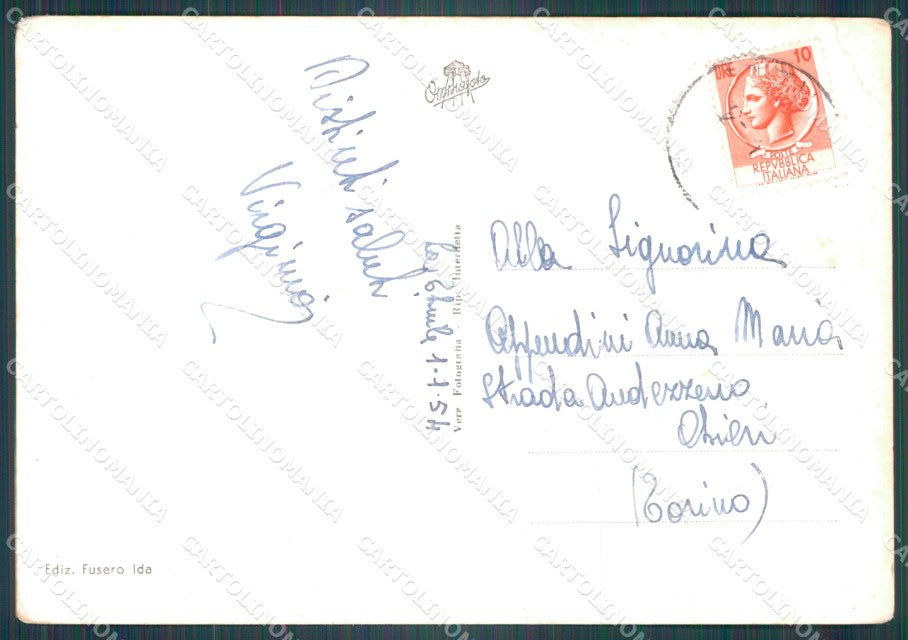 Distinti saluti
Virginia
La Thuile 1-1-54
Vere Fotografia - Rip. Interdetta
LIRE 10
POSTE
REPVBBLICA
ITALIANA
Alla Signorina
Appendini Anna Maria
Strada Andezzeno
Chieri
(Torino)
Ediz. Fusero Ida
CARTOLINOMANIA